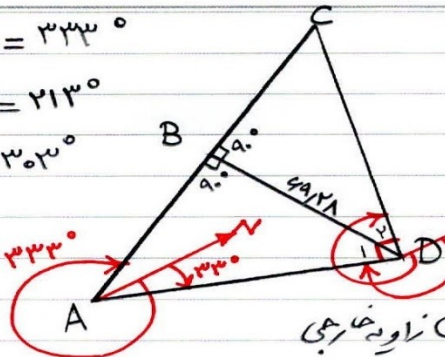 = ۳۳۳°
= ۲۱۳°
۳۰۳°
C
B
۹۰°
۹۰°
۶۹,۲۸
۳۳۳°
N
۳۳°
۱
۲
D
A
زاویه خارجی